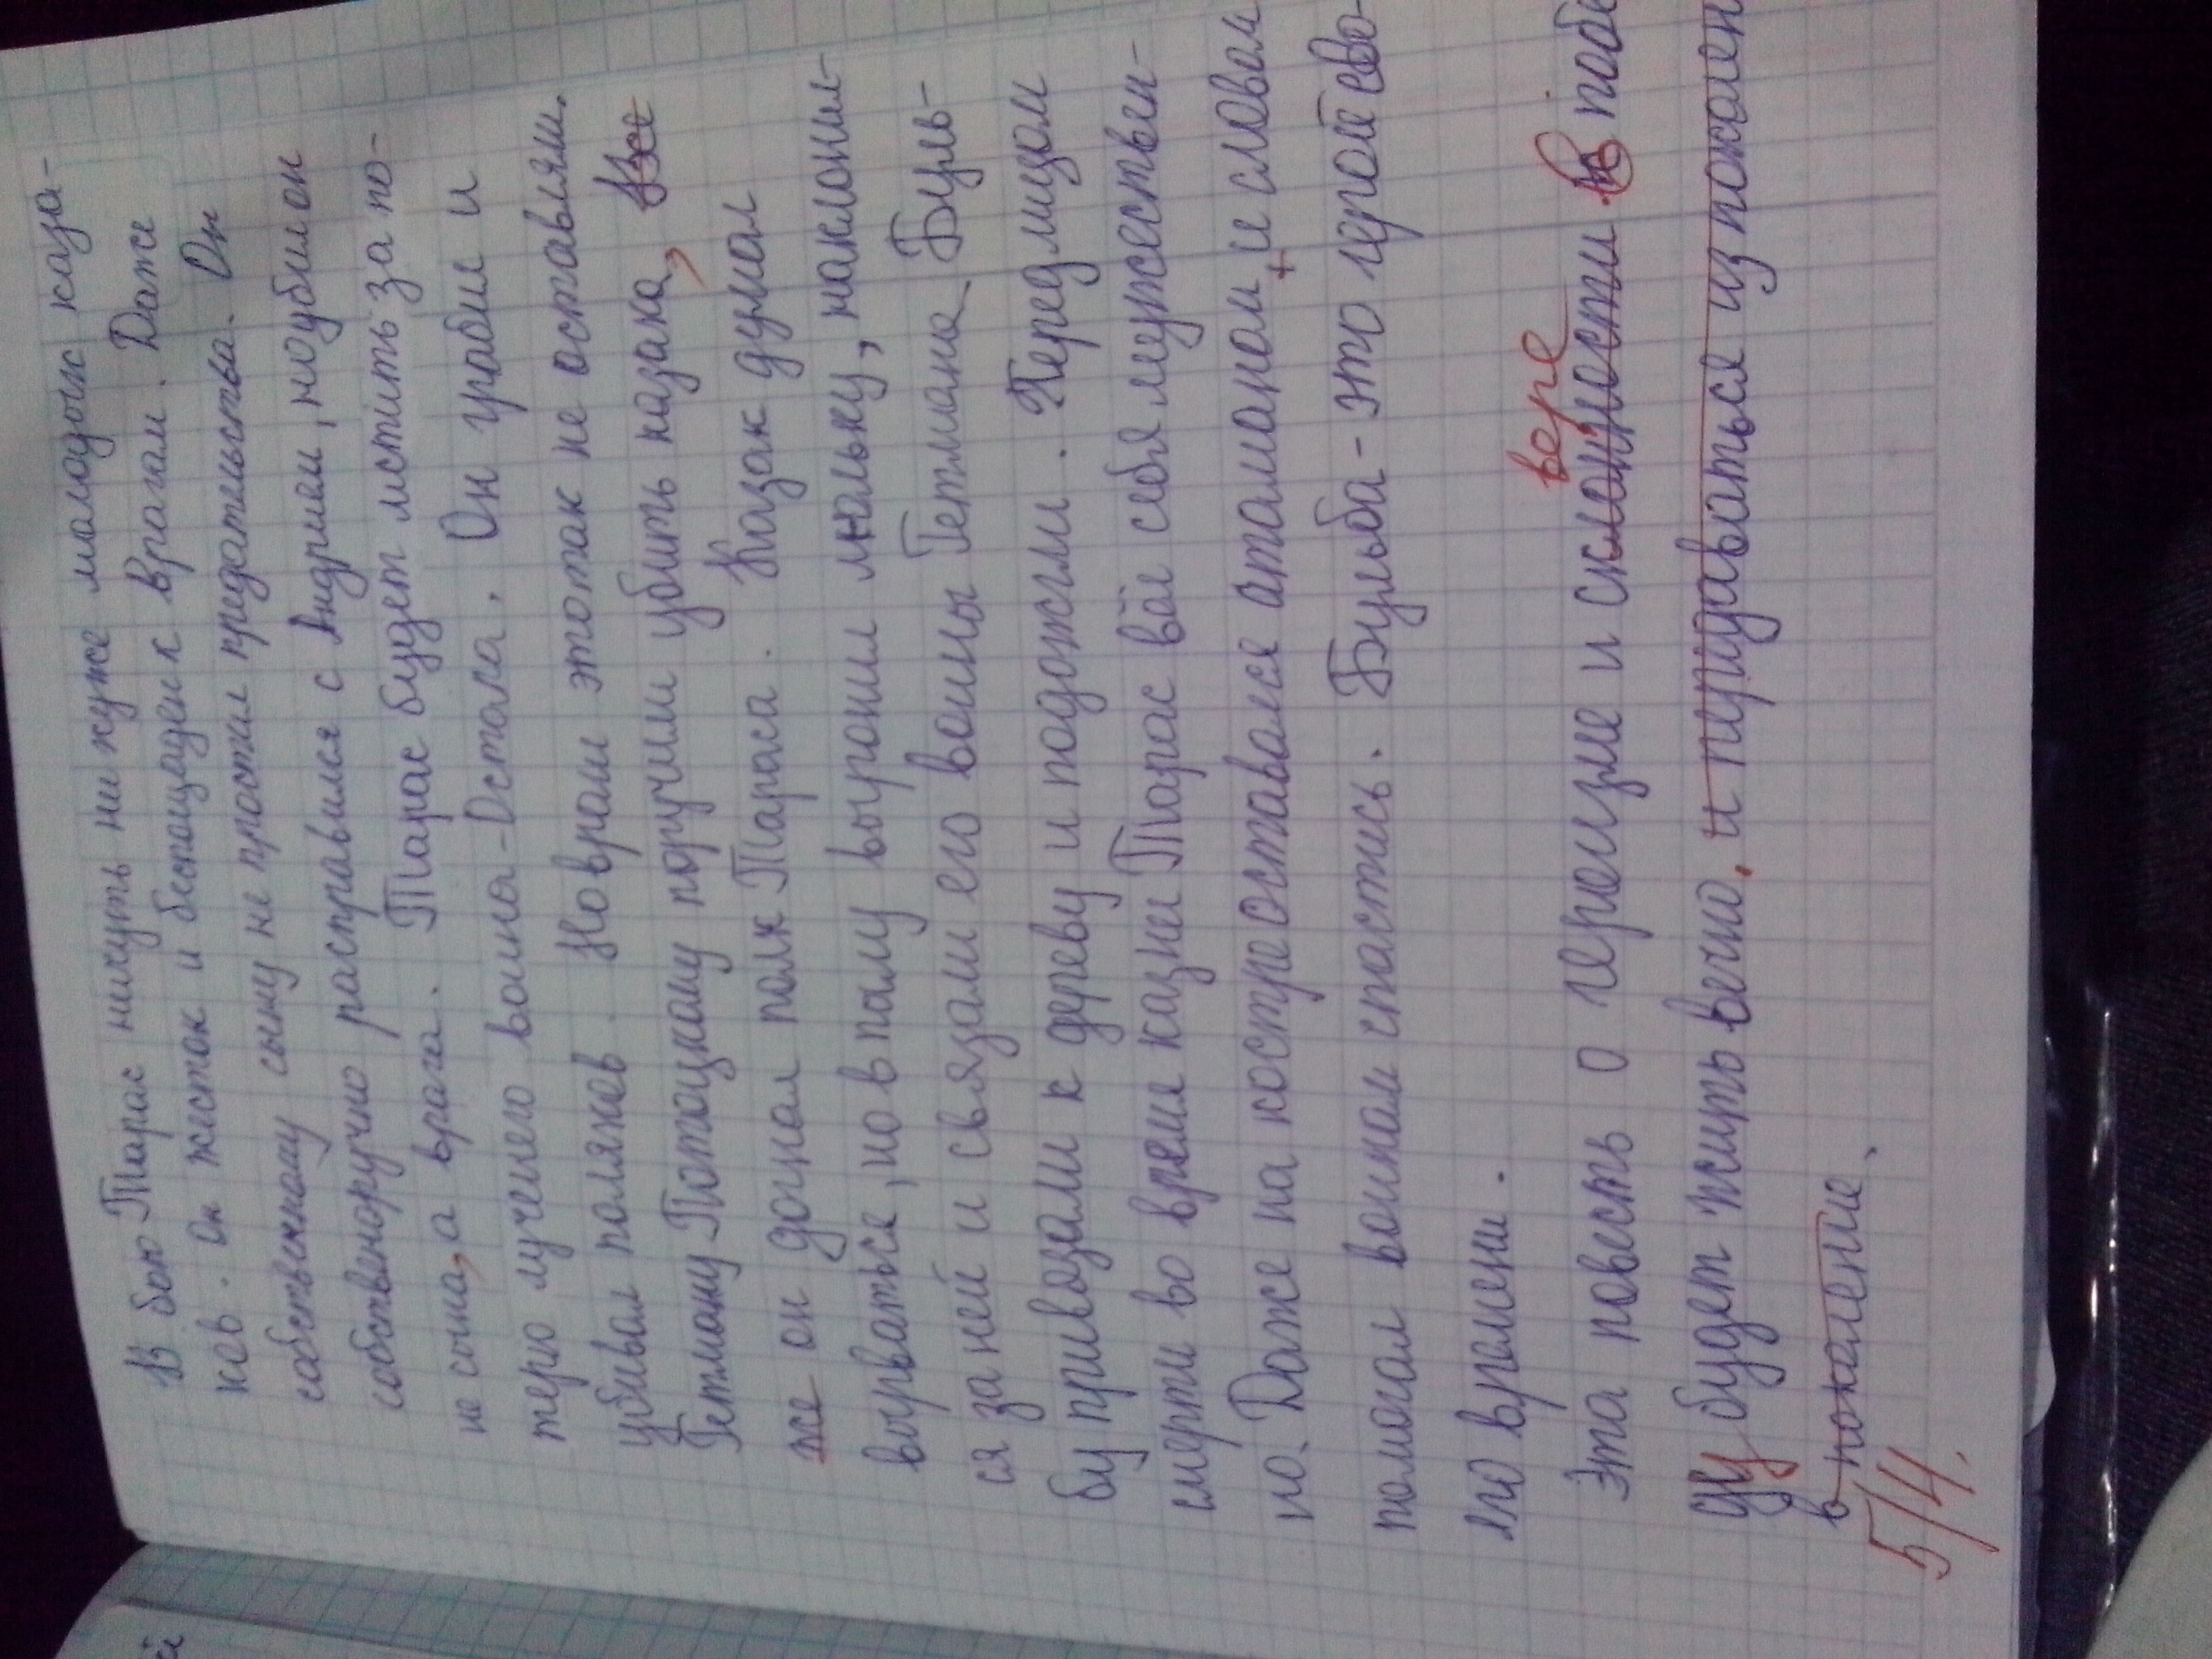 В бою Тарас ничуть ни хуже молодых каза-
ков. Он жесток и беспощаден к врагам. Даже
собственному сыну не простил предательства. Он
собственоручно расправился с Андрием, но убил он
не сына, а врага. Тарас будет мстить за по-
терю лучшего воина-Остапа. Он грабил и
убивал поляков. Но враги это так не оставляли.
Гетману Потоцкому поручили убить казака, все
же он догнал полк Тараса. Казак думал
вырваться, но в полу выронил люльку, наклонил-
ся за ней и связали его воины Гетмана. Буль-
бу привязали к дереву и подожгли. Перед лицом
смерти во время казни Тарас вёл себя мужествен-
но. Даже на костре оставался атаманом и словом
помогал воинам спастись. Бульба - это герой свое-
го времени.
вере
Эта повесть о героизме и склонности в побе
ду будет жить вечно, и придаваться из поколен
в поколение.
5/4.
ей